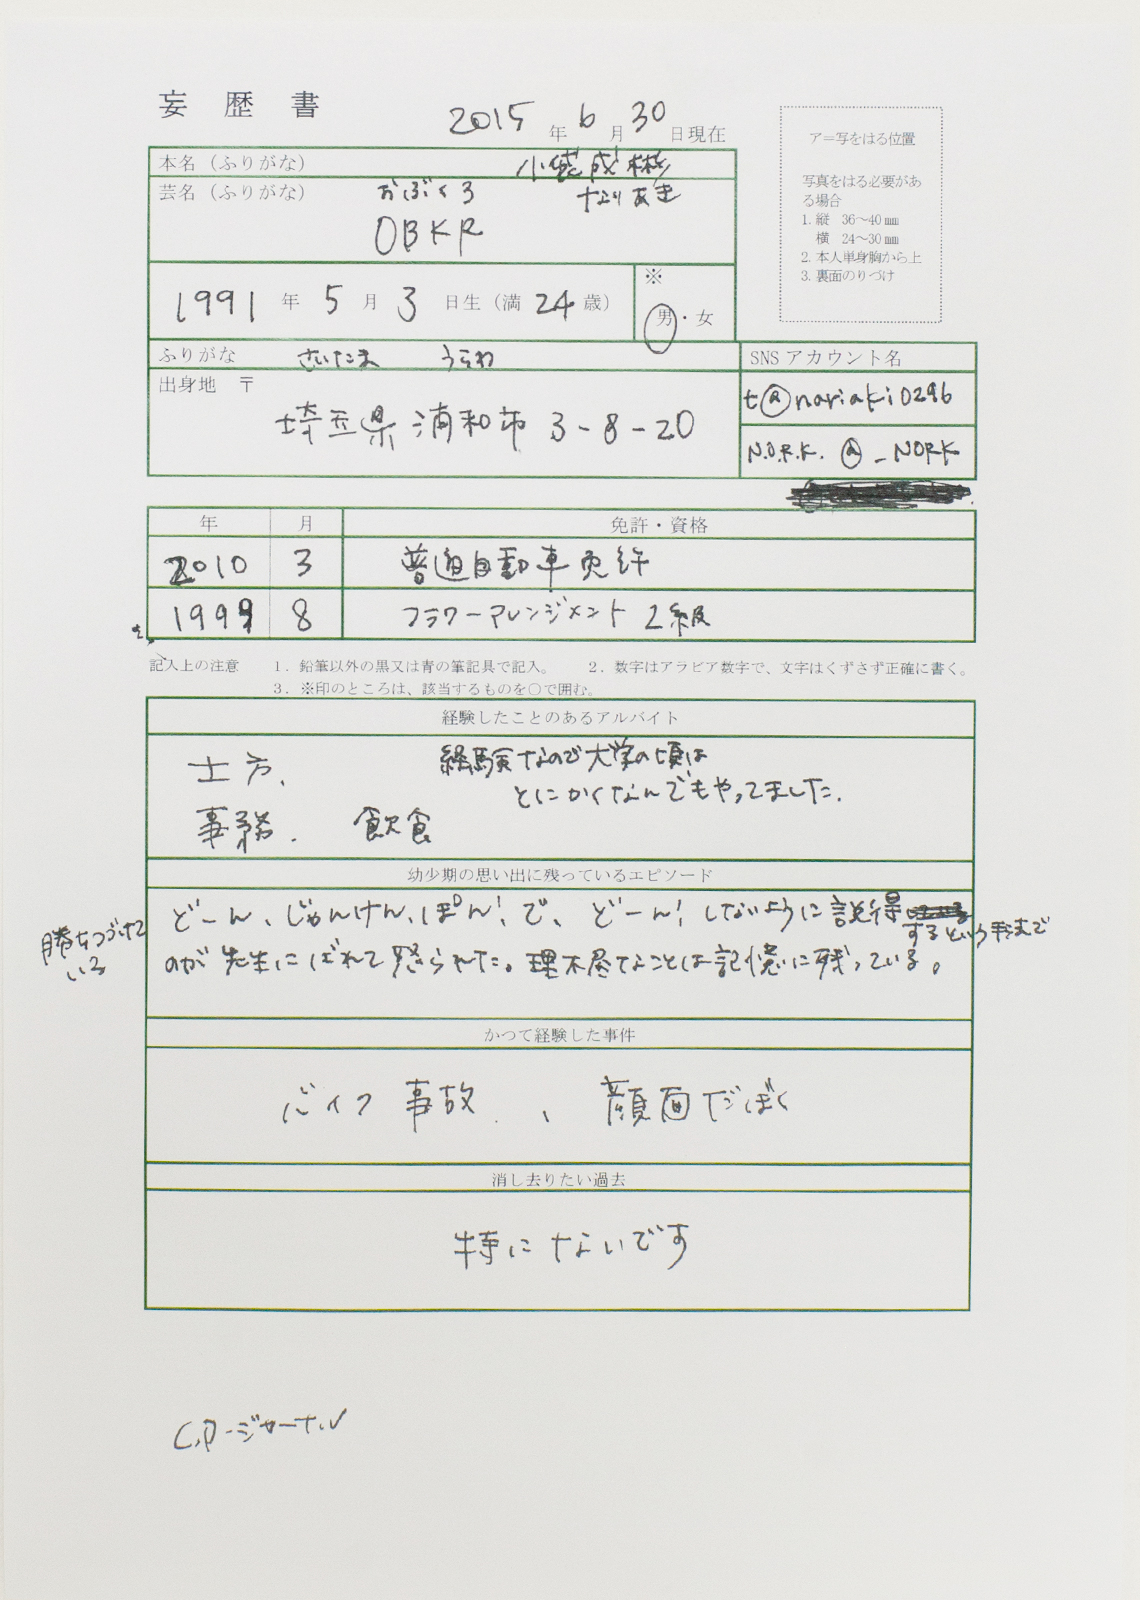 妄歴書
2015年6月30日現在
ア=写をはる位置
写真をはる必要があ
る場合
1. 縦 36~40㎜
横 24~30㎜
2. 本人単身胸から上
3. 裏面のりづけ
本名（ふりがな） 小袋成彬
芸名（ふりがな） おぶくろ なりあき
OBKR
1991年5月3日生（満24歳）
※
男・女
ふりがな さいたま うらわ
出身地 〒
埼玉県浦和市3-8-20
SNSアカウント名
t@nariaki0296
N.O.R.K. @_NORK
年 月 免許・資格
2010 3 普通自動車免許
1999 8 フラワーアレンジメント2級
記入上の注意 1. 鉛筆以外の黒又は青の筆記具で記入。 2. 数字はアラビア数字で、文字はくずさず正確に書く。
3. ※印のところは、該当するものを○で囲む。
経験したことのあるアルバイト
土方、 経験なので大学の頃は
とにかくなんでもやってました.
事務. 飲食
幼少期の思い出に残っているエピソード
どーん、じゃんけん、ぽん！で、どーん！しないように説得
するという手法で
勝ちつづけて
いる
のが先生にばれて怒られた。理不尽なことは記憶に残っている。
かつて経験した事件
バイク事故、顔面だぼく
消し去りたい過去
特にないです
C.P-ジャーナル